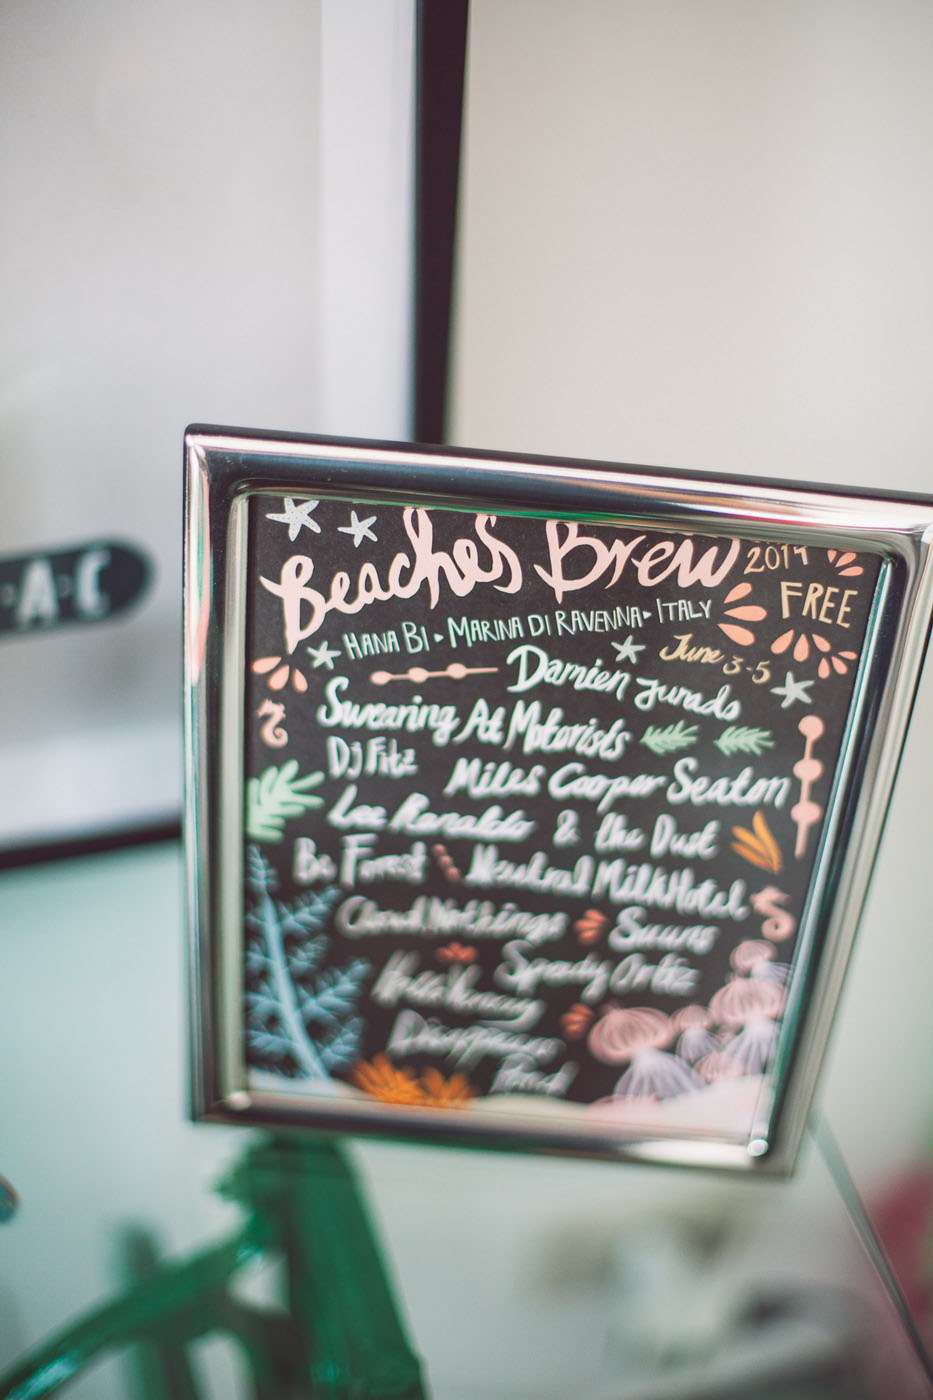 Beaches Brew 2014
FREE
HANA BI ▸ MARINA DI RAVENNA ▸ ITALY
June 3-5
Damien Jurado
Swearing At Motorists
Dj Fitz
Miles Cooper Seaton
Lee Ranaldo & the Dust
Be Forest
Neutral Milk Hotel
Cloud Nothings
Suuns
Speedy Ortiz
A·C